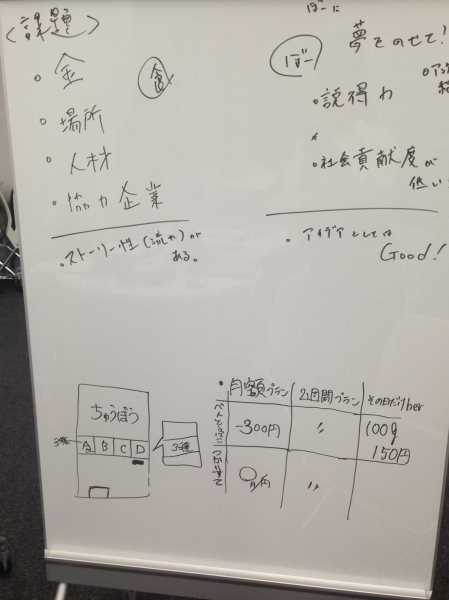 〈課題〉
・金
食
・場所
・人材
・協力企業
・ストーリー性(流れ)が
ある。
ぼーに
ぼー
夢をのせて!
・説得力
・社会貢献度が
低い
・アイデアとしては
Good!
ちゅうぼう
A B C D
3種
3種
・月額プラン
2週間プラン
その日だけ
-300円
〃
100g
150円
〇/円
〃